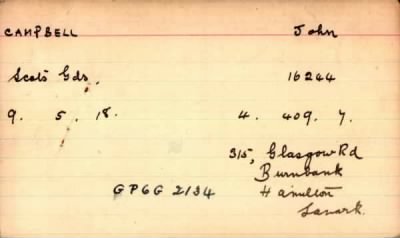 CAMPBELL John
Scots Gds. 16244
9. 5. 18. 4. 409. 7.
315, Glasgow Rd
Burnbank
Hamilton
Lanark.
GP6G 2134